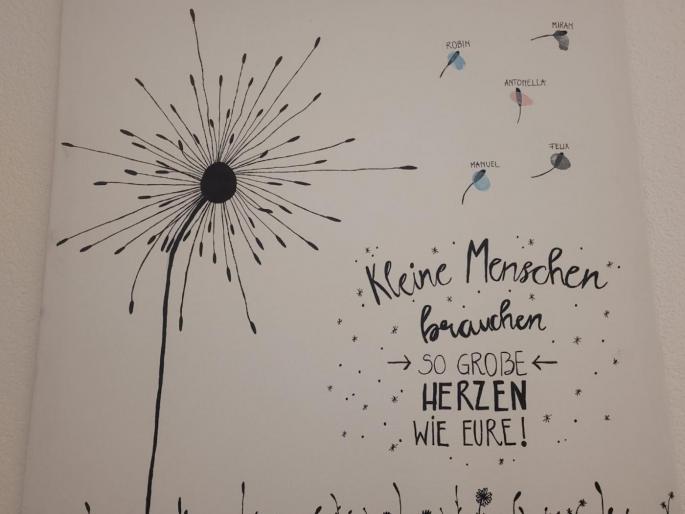 ROBIN
MIRAN
ANTONELLA
MANUEL
FELIX
Kleine Menschen
brauchen
→ SO GROßE ←
HERZEN
WIE EURE!